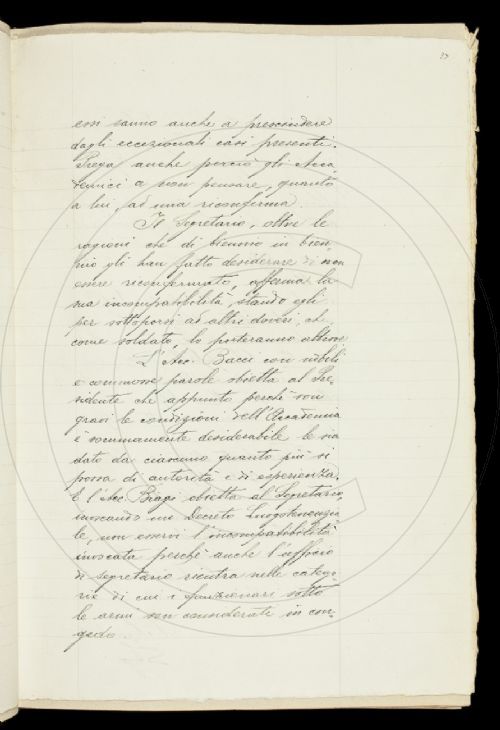 37
essi sanno anche a prescindere
dagli eccezionali casi presenti.
Prega anche perciò gli Acca-
demici a non pensare, quanto
a lui, ad una riconferma.
Il Segretario, oltre le
ragioni che di biennio in bien-
nio gli han fatto desiderare di non
essere riconfermato, afferma la
sua incompatibilità, stando egli
per sottoporsi ad altri doveri, che
come soldato, lo porteranno altrove.
L'Acc. Bacci con nobili
e commosse parole obietta al Pre-
sidente che appunto perchè son
gravi le condizioni dell'Accademia
è sommamente desiderabile le sia
dato da ciascuno quanto più si
possa di autorità e di esperienza.
E l'Acc. Biagi obietta al Segretario,
invocando un Decreto Luogotenenzia-
le, non esservi l'incompatibilità
invocata perchè anche l'ufficio
di segretario rientra nelle catego-
rie di cui i funzionari sotto
le armi son considerati in con-
gedo.